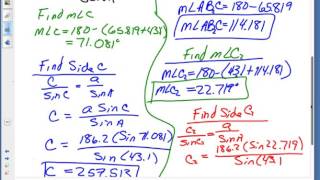 Find m∠C
m∠C = 180-(65.819+43.1)
= 71.081°
Find Side C
C/SinC = a/SinA
C = a SinC/SinA
C = 186.2(Sin 71.081)/Sin(43.1)
C = 257.513
m∠AB₂C = 180-65.819
m∠AB₂C = 114.181
Find m∠C₂
m∠C₂ = 180-(43.1+114.181)
m∠C₂ = 22.719°
Find Side C₂
C₂/SinC₂ = a/SinA
C₂ = 186.2(Sin 22.719)/Sin(43.1